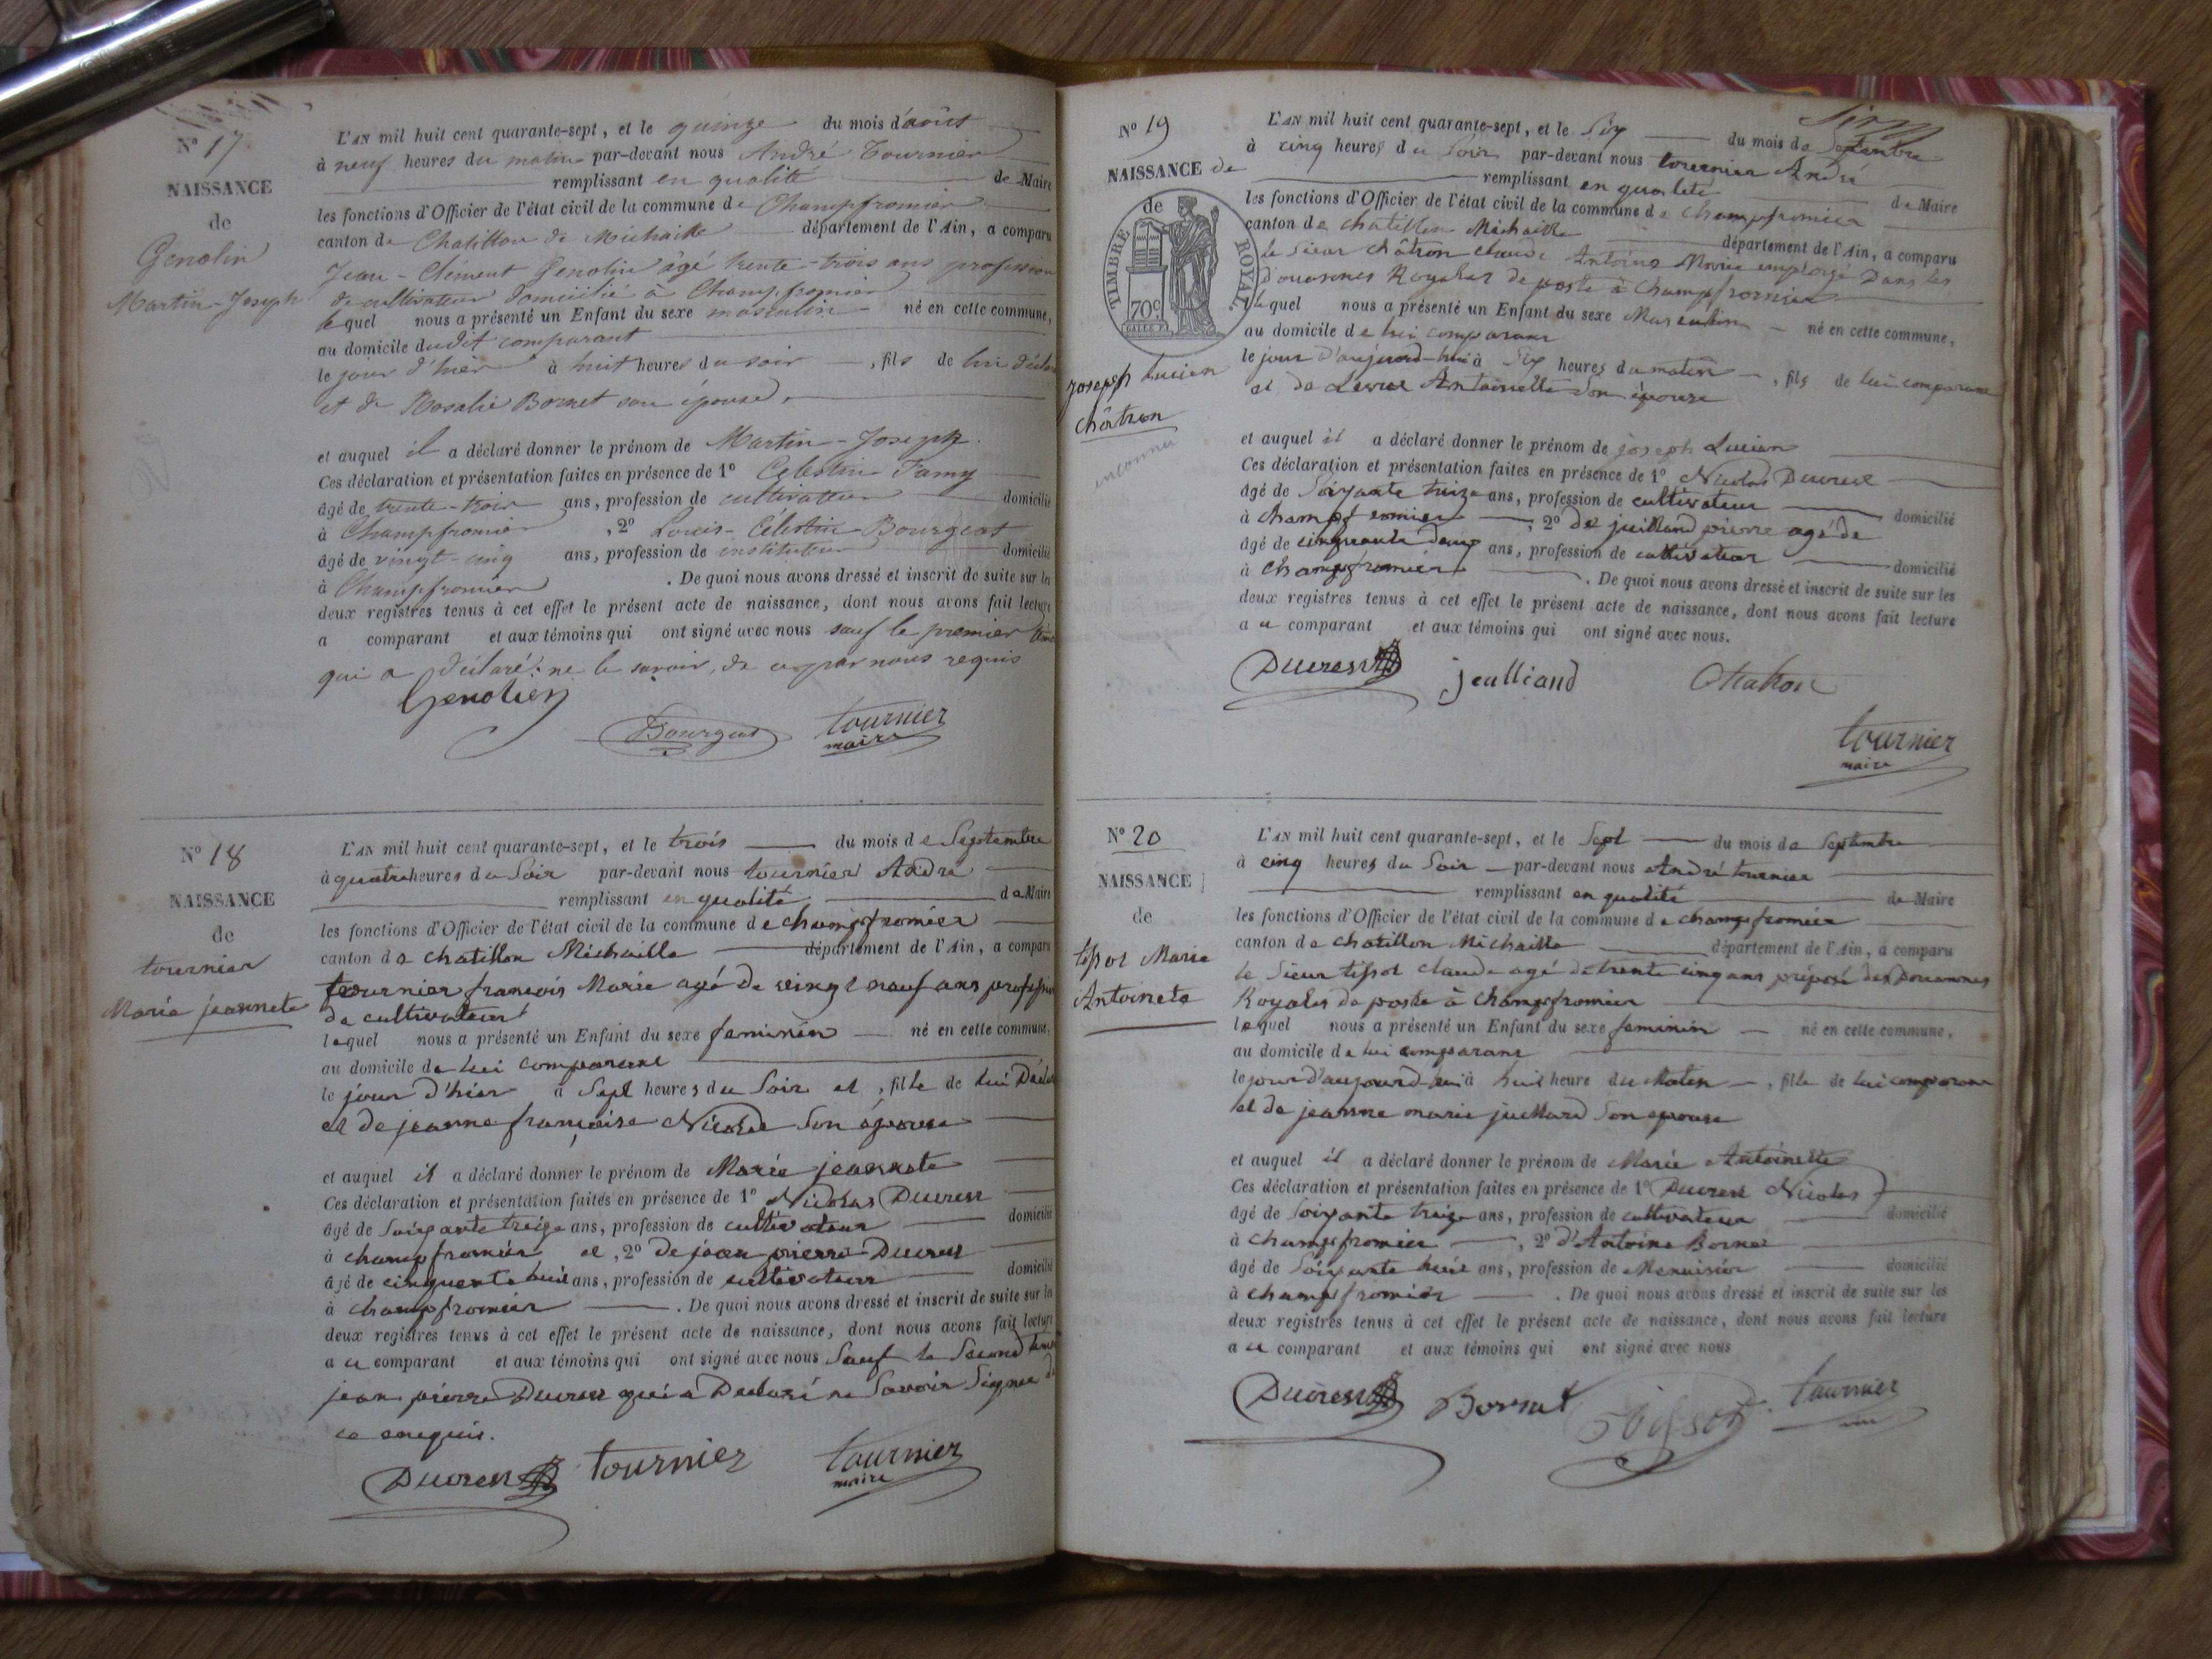 N° 17
NAISSANCE
de
Genolin
Martin-Joseph
L'AN mil huit cent quarante-sept, et le quinze du mois d'août
à neuf heures du matin par-devant nous André Tournier
remplissant en qualité de Maire
les fonctions d'Officier de l'état civil de la commune de Champfromier
canton de Chatillon de Michaille département de l'Ain, a comparu
Jean-Clément Genolin âgé trente-trois ans profession
de cultivateur domicilié à Champfromier
lequel nous a présenté un Enfant du sexe masculin né en cette commune,
au domicile dudit comparant
le jour d'hier à huit heures du soir, fils de lui
et de Rosalie Bornet son épouse,
et auquel il a déclaré donner le prénom de Martin-Joseph.
Ces déclaration et présentation faites en présence de 1° Célestin Famy
âgé de trente-trois ans, profession de cultivateur domicilié
à Champfromier, 2° Louis-Célestin-Bourgeot
âgé de vingt-cinq ans, profession de instituteur domicilié
à Champfromier. De quoi nous avons dressé et inscrit de suite sur les
deux registres tenus à cet effet le présent acte de naissance, dont nous avons fait lecture
a comparant et aux témoins qui ont signé avec nous sauf le premier
qui a déclaré ne le savoir, de ce par nous requis
Genolin
Bourgeot tournier
maire
N° 18
NAISSANCE
de
tournier
Marie jeannete
L'AN mil huit cent quarante-sept, et le trois du mois de Septembre
à quatre heures du Soir par-devant nous tournier André
remplissant en qualité de Maire
les fonctions d'Officier de l'état civil de la commune de champfromier
canton de chatillon Michaille département de l'Ain, a comparu
tournier françois Marie agé de vingt neuf ans profession
de cultivateur
lequel nous a présenté un Enfant du sexe feminin né en cette commune,
au domicile de lui comparant
le jour d'hier à Sept heures du Soir et, fille de lui
et de jeanne françoise Nicolle Son épouse
et auquel il a déclaré donner le prénom de Marie jeannete
Ces déclaration et présentation faites en présence de 1° Nicolas Ducrest
âgé de Soixante treize ans, profession de cultivateur domicilié
à champfromier et, 2° De jean pierre Ducrest
âgé de cinquante huit ans, profession de cultivateur domicilié
à champfromier. De quoi nous avons dressé et inscrit de suite sur les
deux registres tenus à cet effet le présent acte de naissance, dont nous avons fait lecture
a u comparant et aux témoins qui ont signé avec nous Sauf le Second
jean pierre Ducrest qui a Declaré ne Savoir Signer de
ce enrequis.
Ducrest tournier tournier
maire
N° 19
NAISSANCE de
de
TIMBRE ROYAL
70c
joseph Lucien
châtron
inconnu
L'AN mil huit cent quarante-sept, et le Six du mois de Septembre
à cinq heures du Soir par-devant nous tournier André
remplissant en qualité de Maire
les fonctions d'Officier de l'état civil de la commune de champfromier
canton de chatillon Michaille département de l'Ain, a comparu
le Sieur châtron claude Antoine Marie employé Dans les
Douannes Royales de poste à Champfromier
lequel nous a présenté un Enfant du sexe Masculin né en cette commune,
au domicile de lui comparant
le jour D'aujourd-hui à Six heures du matin, fils de lui comparant
et de Antoinette Son épouse
et auquel il a déclaré donner le prénom de joseph Lucien
Ces déclaration et présentation faites en présence de 1° Nicolas Ducrest
âgé de Soixante treize ans, profession de cultivateur domicilié
à Champfromier, 2° De juilland pierre agé de
âgé de cinquante deux ans, profession de cultivateur domicilié
à Champfromier. De quoi nous avons dressé et inscrit de suite sur les
deux registres tenus à cet effet le présent acte de naissance, dont nous avons fait lecture
a u comparant et aux témoins qui ont signé avec nous.
Ducrest juilliand Chatron
tournier
maire
N° 20
NAISSANCE
de
tissot Marie
Antoinete
L'AN mil huit cent quarante-sept, et le Sept du mois de Septembre
à cinq heures du Soir par-devant nous André tournier
remplissant en qualité de Maire
les fonctions d'Officier de l'état civil de la commune de champfromier
canton de chatillon Michaille département de l'Ain, a comparu
le Sieur tissot claude agé de trente cinq ans préposé des Douannes
Royales de poste à champfromier
lequel nous a présenté un Enfant du sexe feminin né en cette commune,
au domicile de lui comparant
le jour d'aujourd hui à huit heure du Matin, fille de lui comparant
et de jeanne marie juillard Son epouse
et auquel il a déclaré donner le prénom de Marie Antoinette
Ces déclaration et présentation faites en présence de 1° Ducrest Nicolas
âgé de Soixante treize ans, profession de cultivateur domicilié
à champfromier, 2° d'Antoine Bornet
âgé de Soixante huit ans, profession de Menuisier domicilié
à champfromier. De quoi nous avons dressé et inscrit de suite sur les
deux registres tenus à cet effet le présent acte de naissance, dont nous avons fait lecture
a u comparant et aux témoins qui ont signé avec nous
Ducrest Bornet tissot tournier